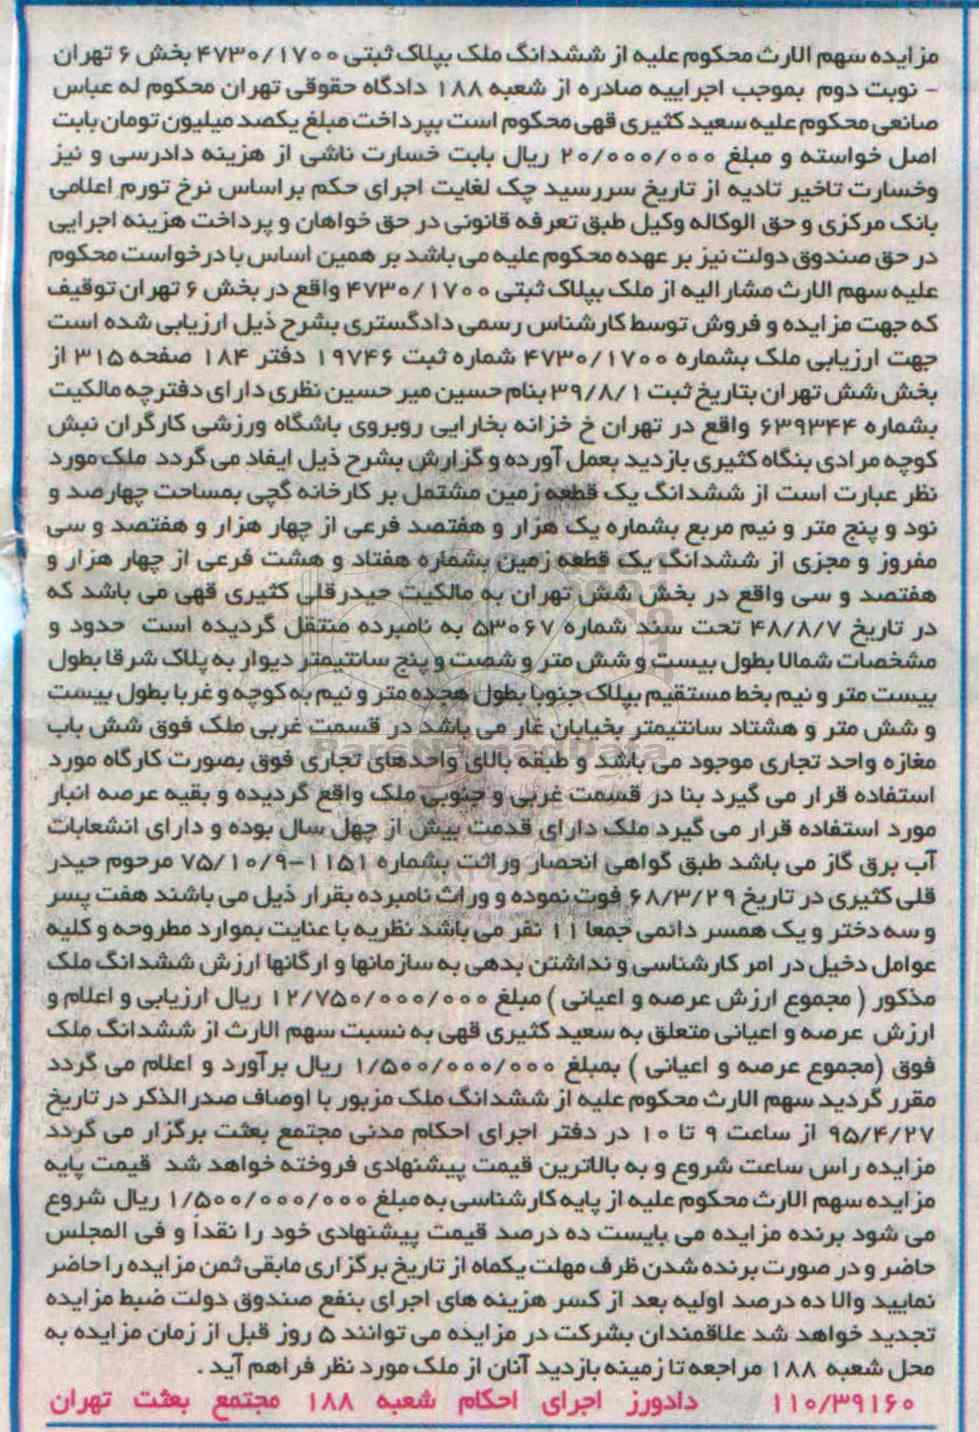 مزایده سهم الارث محکوم علیه از ششدانگ ملک بپلاک ثبتی ۴۷۳۰/۱۷۰۰ بخش ۶ تهران
- نوبت دوم بموجب اجراییه صادره از شعبه ۱۸۸ دادگاه حقوقی تهران محکوم له عباس
صانعی محکوم علیه سعید کثیری قهی محکوم است بپرداخت مبلغ یکصد میلیون تومان بابت
اصل خواسته و مبلغ ۲۰/۰۰۰/۰۰۰ ریال بابت خسارت ناشی از هزینه دادرسی و نیز
وخسارت تاخیر تادیه از تاریخ سررسید چک لغایت اجرای حکم براساس نرخ تورم اعلامی
بانک مرکزی و حق الوکاله وکیل طبق تعرفه قانونی در حق خواهان و پرداخت هزینه اجرایی
در حق صندوق دولت نیز بر عهده محکوم علیه می باشد بر همین اساس با درخواست محکوم
علیه سهم الارث مشارالیه از ملک بپلاک ثبتی ۴۷۳۰/۱۷۰۰ واقع در بخش ۶ تهران توقیف
که جهت مزایده و فروش توسط کارشناس رسمی دادگستری بشرح ذیل ارزیابی شده است
جهت ارزیابی ملک بشماره ۴۷۳۰/۱۷۰۰ شماره ثبت ۱۹۷۴۶ دفتر ۱۸۴ صفحه ۳۱۵ از
بخش شش تهران بتاریخ ثبت ۳۹/۸/۱ بنام حسین میر حسین نظری دارای دفترچه مالکیت
بشماره ۶۳۹۳۴۴ واقع در تهران خ خزانه بخارایی روبروی باشگاه ورزشی کارگران نبش
کوچه مرادی بنگاه کثیری بازدید بعمل آورده و گزارش بشرح ذیل ایفاد می گردد ملک مورد
نظر عبارت است از ششدانگ یک قطعه زمین مشتمل بر کارخانه گچی بمساحت چهارصد و
نود و پنج متر و نیم مربع بشماره یک هزار و هفتصد فرعی از چهار هزار و هفتصد و سی
مفروز و مجزی از ششدانگ یک قطعه زمین بشماره هفتاد و هشت فرعی از چهار هزار و
هفتصد و سی واقع در بخش شش تهران به مالکیت حیدرقلی کثیری قهی می باشد که
در تاریخ ۴۸/۸/۷ تحت سند شماره ۵۳۰۶۷ به نامبرده منتقل گردیده است حدود و
مشخصات شمالا بطول بیست و شش متر و شصت و پنج سانتیمتر دیوار به پلاک شرقا بطول
بیست متر و نیم بخط مستقیم بپلاک جنوبا بطول هجده متر و نیم به کوچه و غربا بطول بیست
و شش متر و هشتاد سانتیمتر بخیابان غار می باشد در قسمت غربی ملک فوق شش باب
مغازه واحد تجاری موجود می باشد و طبقه بالای واحدهای تجاری فوق بصورت کارگاه مورد
استفاده قرار می گیرد بنا در قسمت غربی و جنوبی ملک واقع گردیده و بقیه عرصه انبار
مورد استفاده قرار می گیرد ملک دارای قدمت بیش از چهل سال بوده و دارای انشعابات
آب برق گاز می باشد طبق گواهی انحصار وراثت بشماره ۱۱۵۱-۷۵/۱۰/۹ مرحوم حیدر
قلی کثیری در تاریخ ۶۸/۳/۲۹ فوت نموده و وراث نامبرده بقرار ذیل می باشند هفت پسر
و سه دختر و یک همسر دائمی جمعا ۱۱ نفر می باشد نظریه با عنایت بموارد مطروحه و کلیه
عوامل دخیل در امر کارشناسی و نداشتن بدهی به سازمانها و ارگانها ارزش ششدانگ ملک
مذکور ( مجموع ارزش عرصه و اعیانی ) مبلغ ۱۲/۷۵۰/۰۰۰/۰۰۰ ریال ارزیابی و اعلام و
ارزش عرصه و اعیانی متعلق به سعید کثیری قهی به نسبت سهم الارث از ششدانگ ملک
فوق (مجموع عرصه و اعیانی ) بمبلغ ۱/۵۰۰/۰۰۰/۰۰۰ ریال برآورد و اعلام می گردد
مقرر گردید سهم الارث محکوم علیه از ششدانگ ملک مزبور با اوصاف صدرالذکر در تاریخ
۹۵/۴/۲۷ از ساعت ۹ تا ۱۰ در دفتر اجرای احکام مدنی مجتمع بعثت برگزار می گردد
مزایده راس ساعت شروع و به بالاترین قیمت پیشنهادی فروخته خواهد شد قیمت پایه
مزایده سهم الارث محکوم علیه از پایه کارشناسی به مبلغ ۱/۵۰۰/۰۰۰/۰۰۰ ریال شروع
می شود برنده مزایده می بایست ده درصد قیمت پیشنهادی خود را نقداً و فی المجلس
حاضر و در صورت برنده شدن ظرف مهلت یکماه از تاریخ برگزاری مابقی ثمن مزایده را حاضر
نمایید والا ده درصد اولیه بعد از کسر هزینه های اجرای بنفع صندوق دولت ضبط مزایده
تجدید خواهد شد علاقمندان بشرکت در مزایده می توانند ۵ روز قبل از زمان مزایده به
محل شعبه ۱۸۸ مراجعه تا زمینه بازدید آنان از ملک مورد نظر فراهم آید .
۱۱۰/۳۹۱۶۰ دادورز اجرای احکام شعبه ۱۸۸ مجتمع بعثت تهران
ParsNamadData